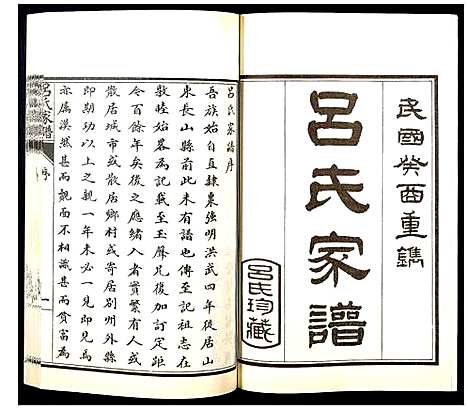 民國癸酉重鐫
呂氏家譜
呂氏珍藏
呂氏家譜序
吾族始自直隸棗強明洪武四年後居山
東長山縣前此未有譜也傳至記祖志在
敬睦始畧為記載至玉聲兄復加訂定距
今百餘年矣後之應緒入者實繁有人或
散居城市或散居鄉村或寄居別州外縣
即期功以上之親一年未必一見即一見
亦屬漠然甚而覿面不相識甚而貧富為
呂氏家譜
序
一